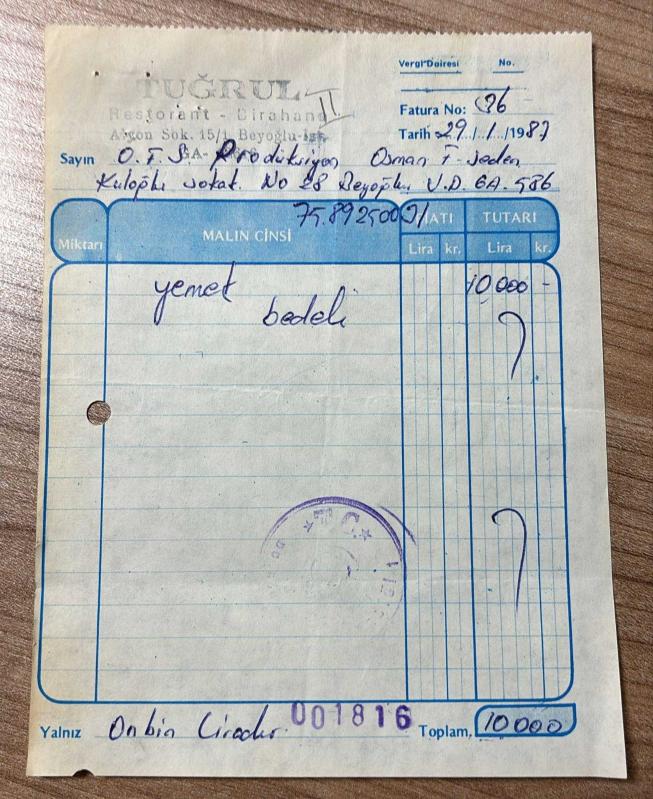 TUĞRUL II
Restorant - Birahane
Sok. 15/1 Beyoğlu-İst.
Vergi Dairesi No.
Fatura No: 36
Tarih 29/1/1987
Sayın O.F.S. Prodüksiyon Osman F. Seden
Kuloğlu sokak. No 28 Beyoğlu V.D. 6A. 586
Miktarı MALIN CİNSİ FİATI TUTARI
Lira kr. Lira kr.
yemek 10.000 -
bedeli
T.C.
001816
Yalnız Onbin Liradır. Toplam. 10000